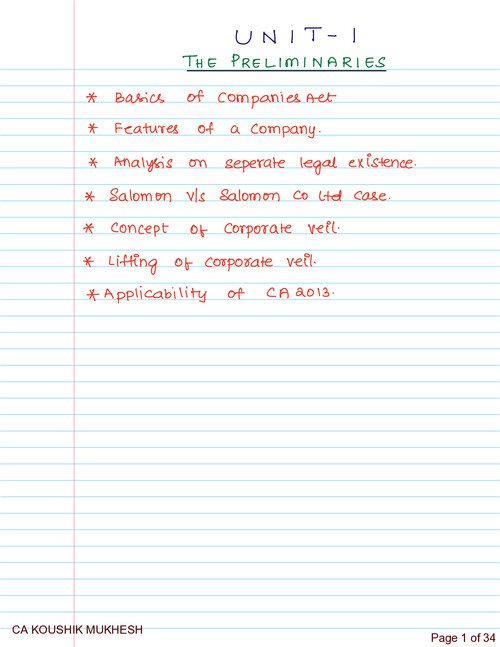 UNIT-1
THE PRELIMINARIES
* Basics of Companies Act
* Features of a Company.
* Analysis on seperate legal existence.
* Salomon v/s Salomon Co Ltd case.
* Concept of Corporate veil.
* Lifting of corporate veil.
* Applicability of CA 2013.
CA KOUSHIK MUKHESH
Page 1 of 34